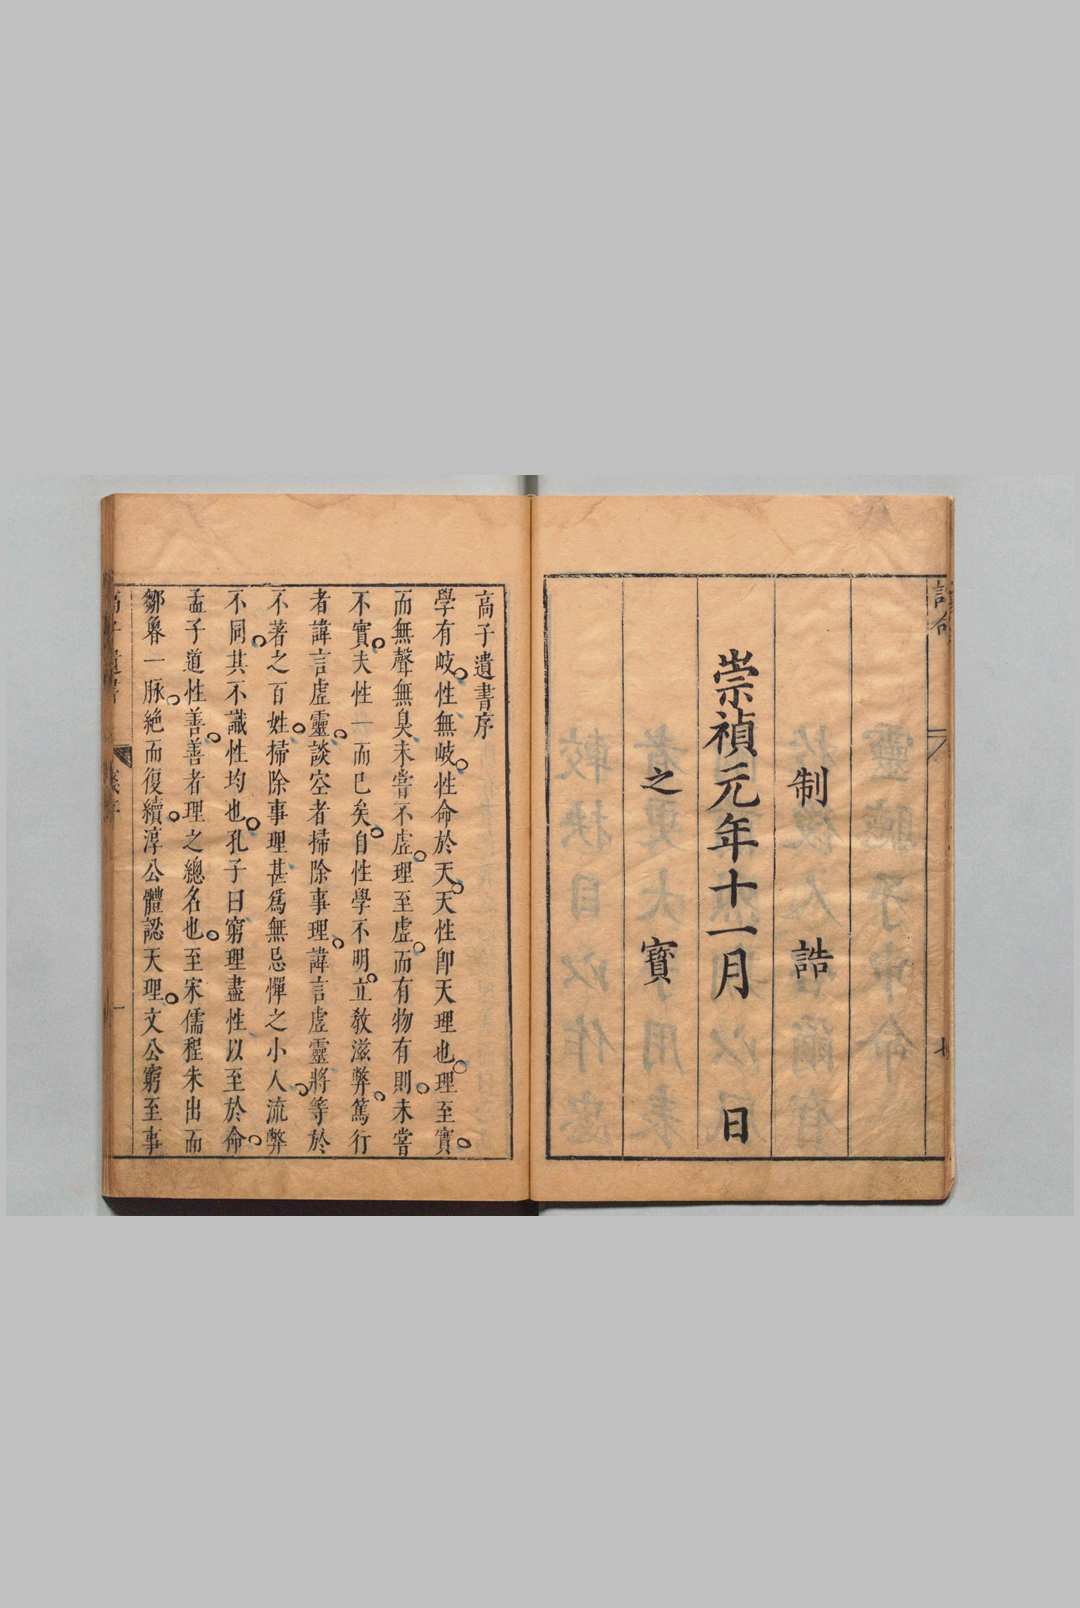 誥命
制誥
崇禎元年十一月　日
之寶
高子遺書序
學有岐性無岐性命於天天性卽天理也理至實
而無聲無臭未嘗不虛理至虛而有物有則未嘗
不實夫性一而已矣自性學不明立敎滋弊篤行
者諱言虛靈談空者掃除事理諱言虛靈將等於
不著之百姓掃除事理甚爲無忌憚之小人流弊
不同其不識性均也孔子曰窮理盡性以至於命
孟子道性善善者理之總名也至宋儒程朱出而
鄒魯一脉絶而復續淳公體認天理文公窮至事
高子遺書
一